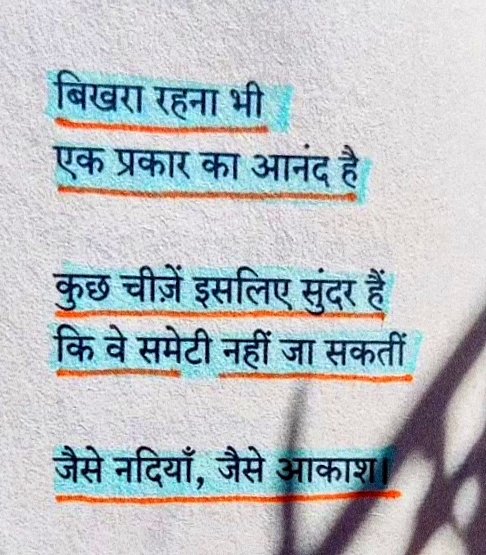 बिखरा रहना भी
एक प्रकार का आनंद है
कुछ चीज़ें इसलिए सुंदर हैं
कि वे समेटी नहीं जा सकतीं
जैसे नदियाँ, जैसे आकाश।